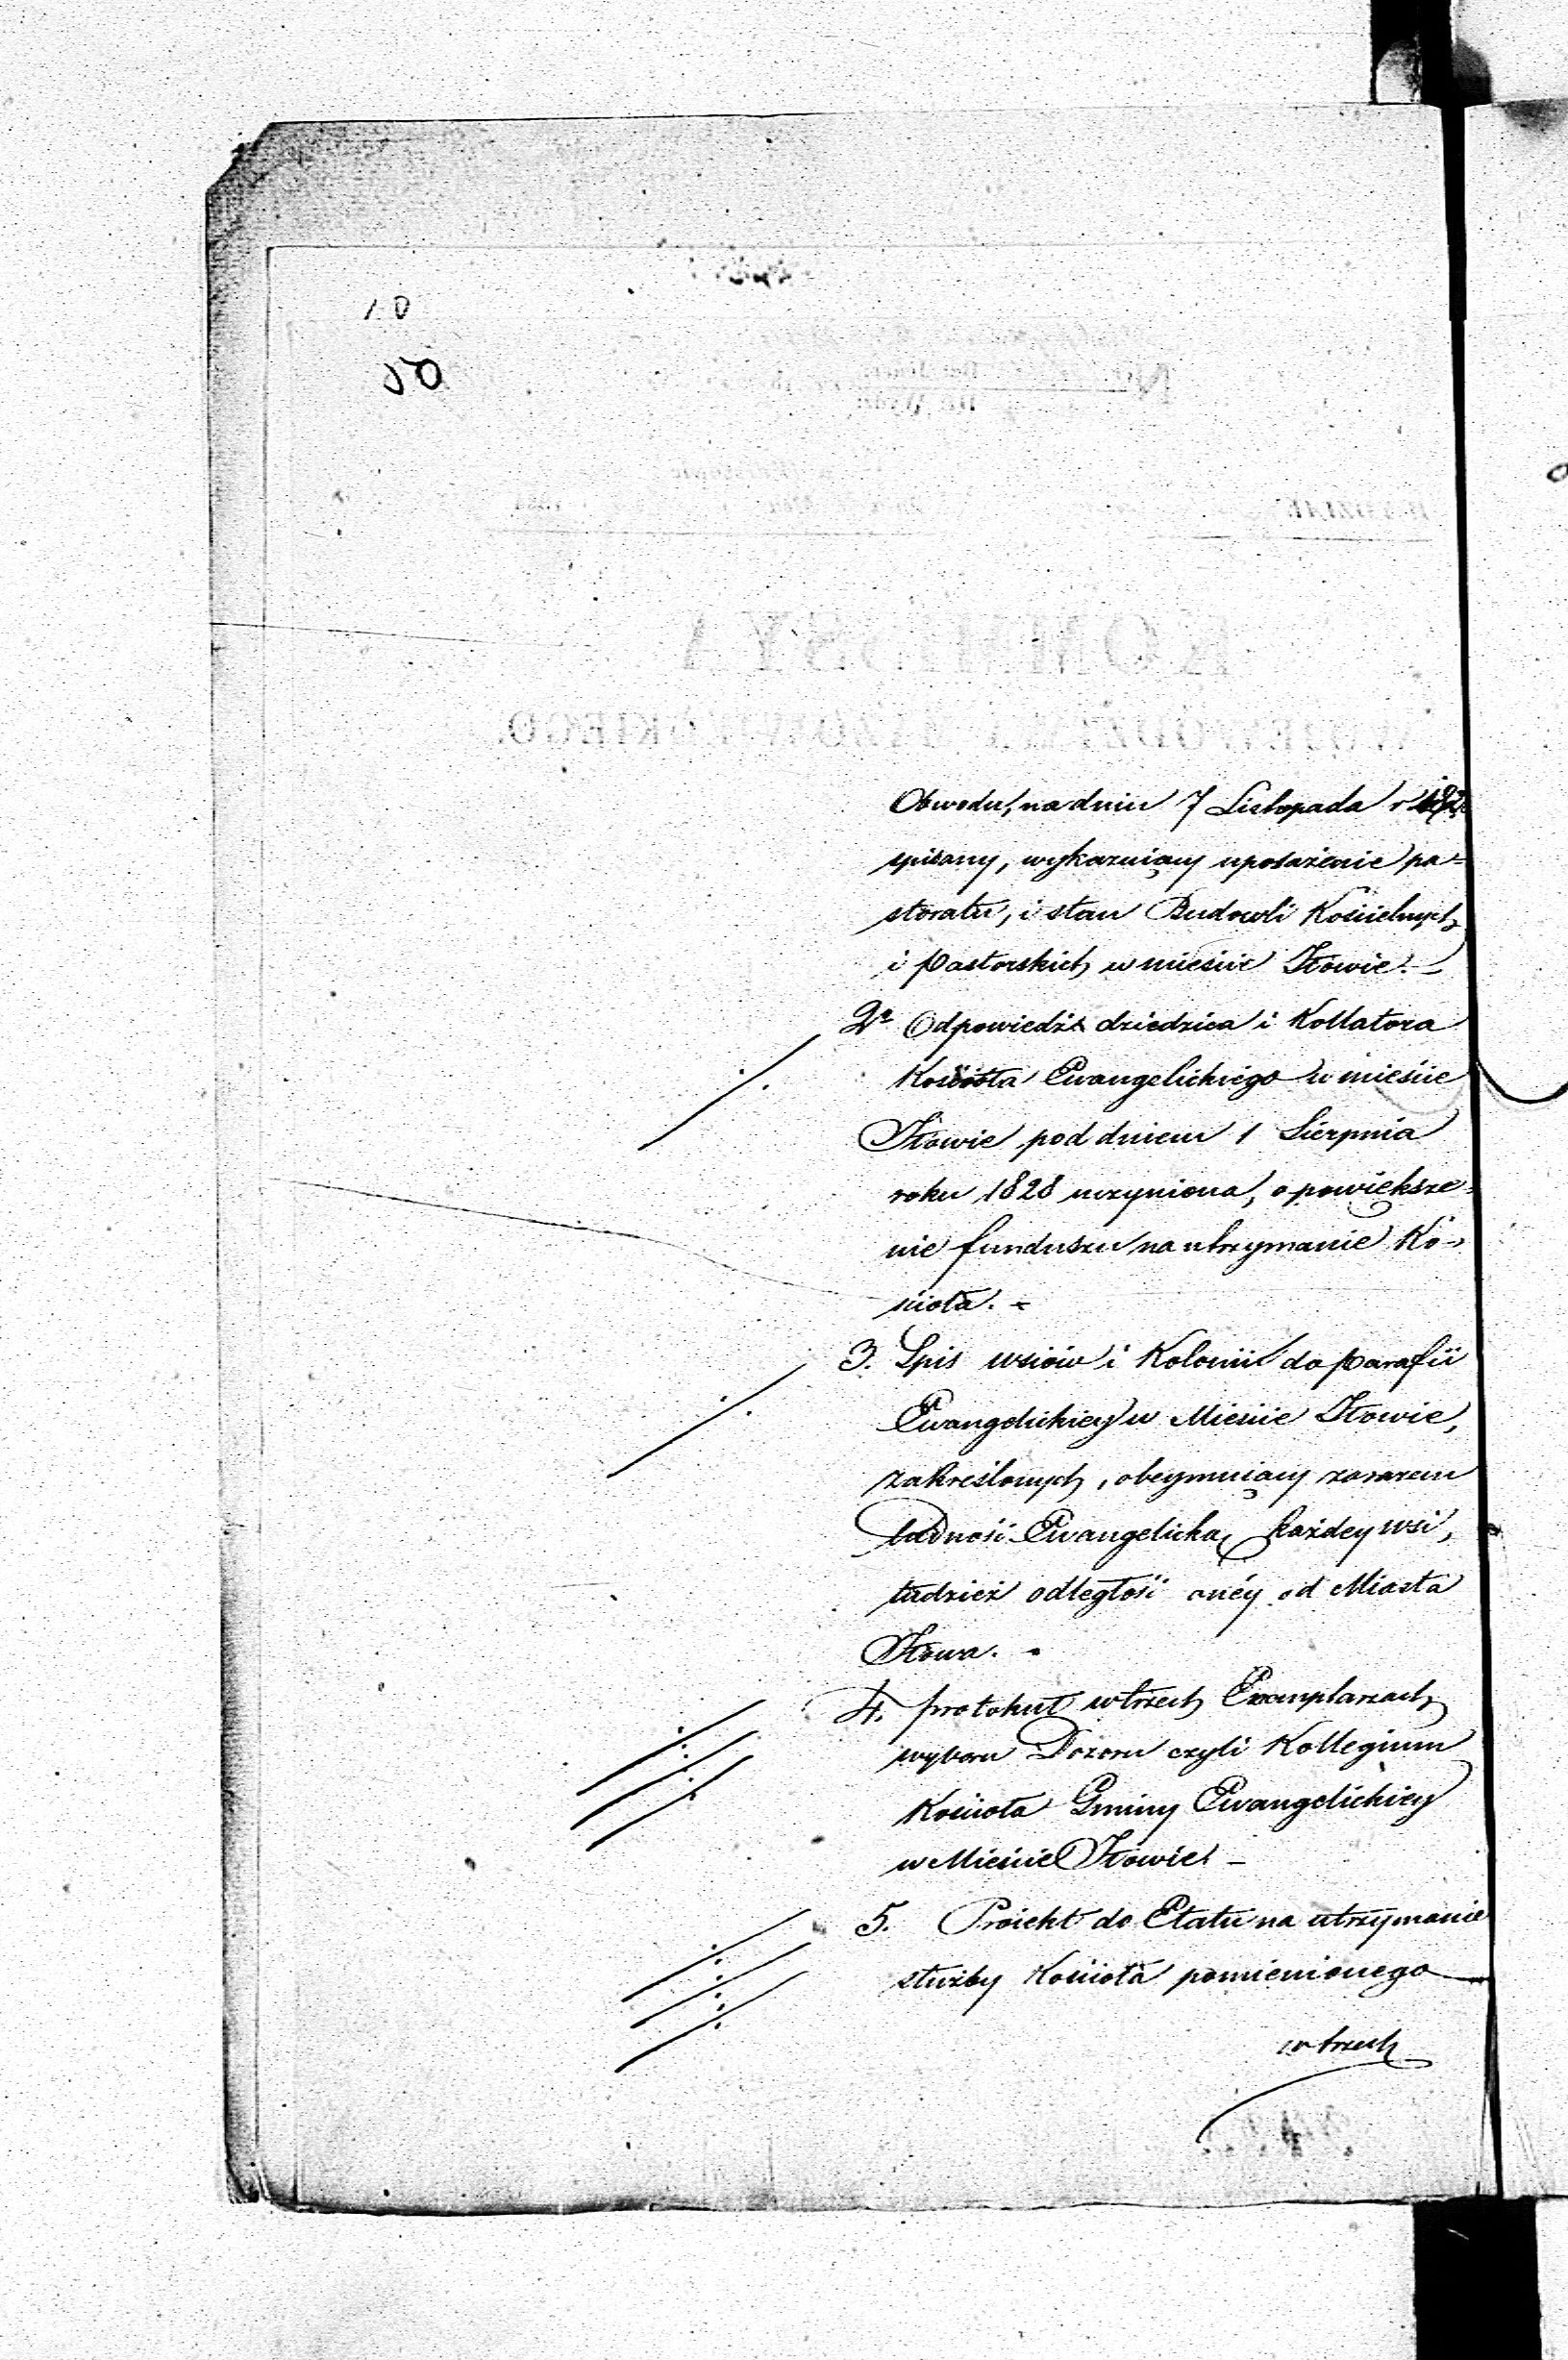 10
50
Obwodu, na dniu 7 Listopada r
spisany, wykazuiący uposażenie pa=
storatu, i stan Budowli Kościelnych
i Pastorskich w mieście Iłowie. —
2e Odpowiedź dziedzica i Kollatora
Kościoła Ewangelickiego w mieście
Iłowie pod dniem 1 Sierpnia
roku 1828 uczyniona, o powiększe=
nie funduszu na utrzymanie Ko=
ścioła. =
3. Spis wsiów i Kolonii do Parafii
Ewangelickiey w Mieście Iłowie,
zakreślonych, obeymuiący zarazem
ludność Ewangelicką każdey wsi,
tudzież odległość onéy od Miasta
Iłowa. =
4. protokuł w trzech Exemplarzach
wyboru Dozoru czyli Kollegium
Kościoła Gminy Ewangelickiey
w Mieście Iłowie. —
5. Proiekt do Etatu na utrzymanie
służby Kościoła pomienionego —
w trzech